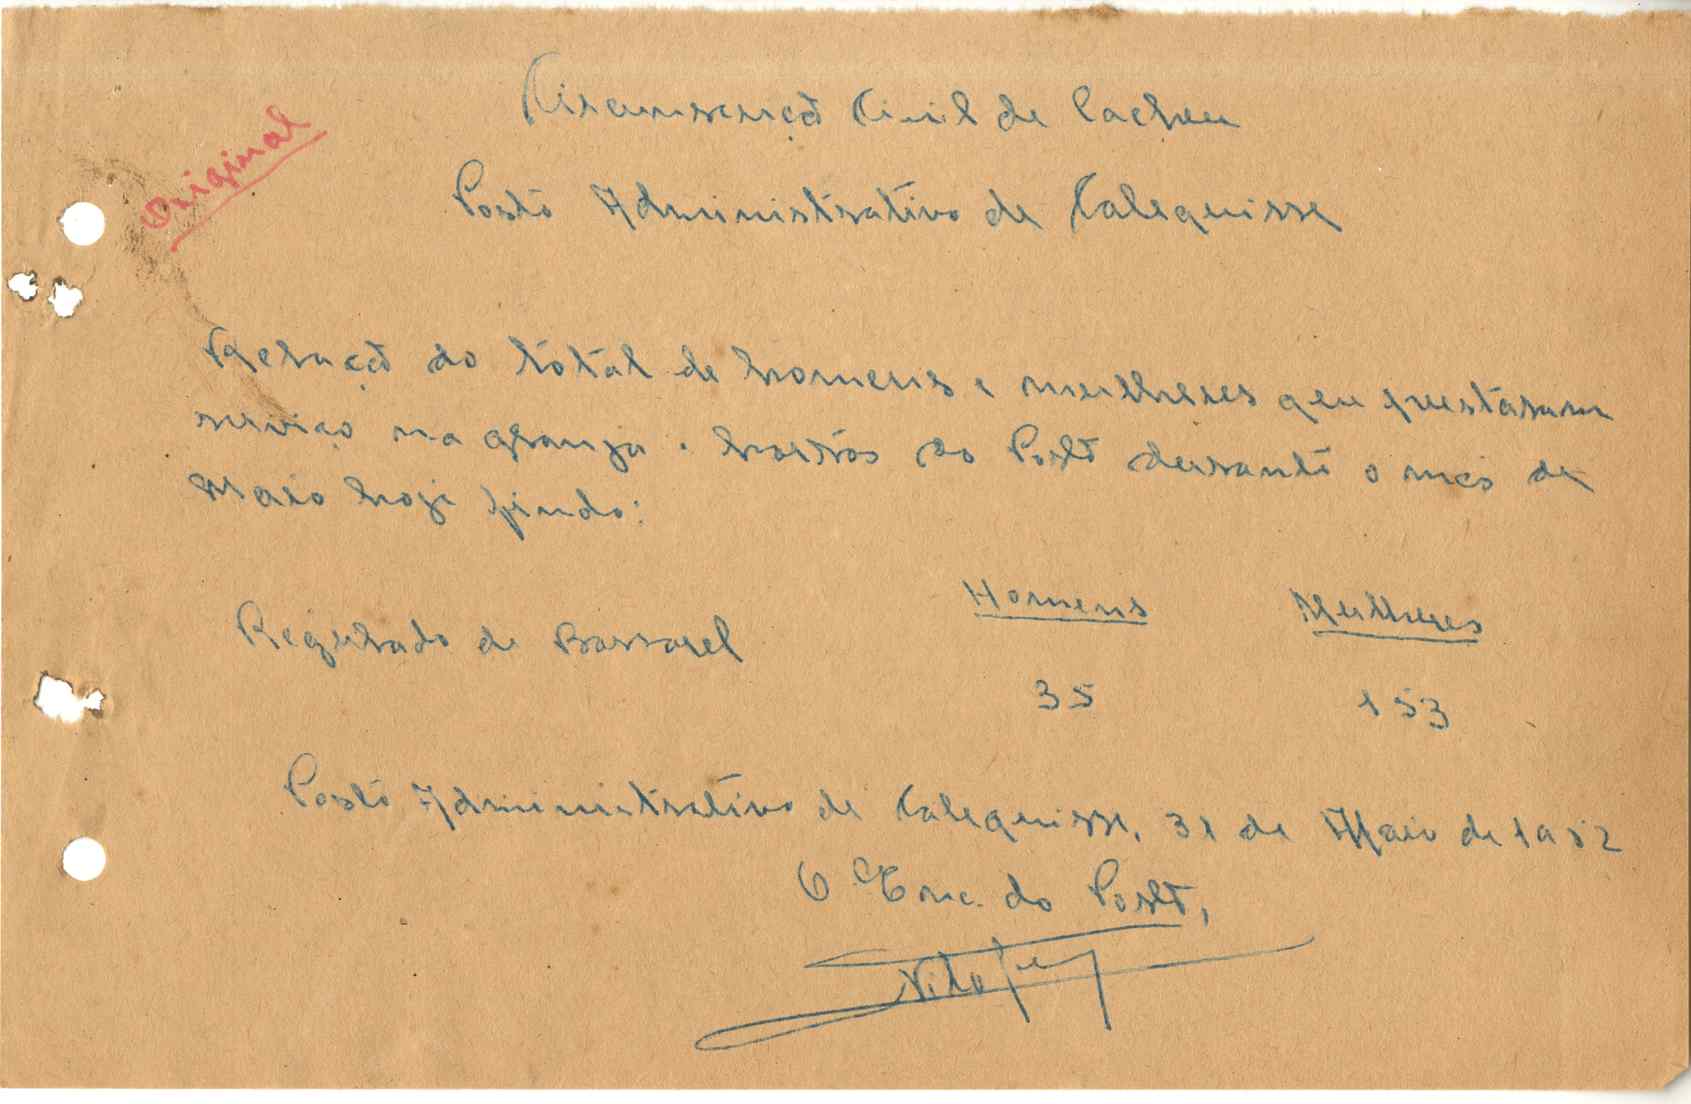 Original
Circunscrição Civil de Cacheu
Posto Administrativo de Calequisse
Relação do total de homens e mulheres que prestaram
serviço na granja e hortas do Posto durante o mês de
Maio hoje findo:
Homens Mulheres
Regulado de Bassarel
35 153
Posto Administrativo de Calequisse, 31 de Maio de 1952
O Enc. do Posto,